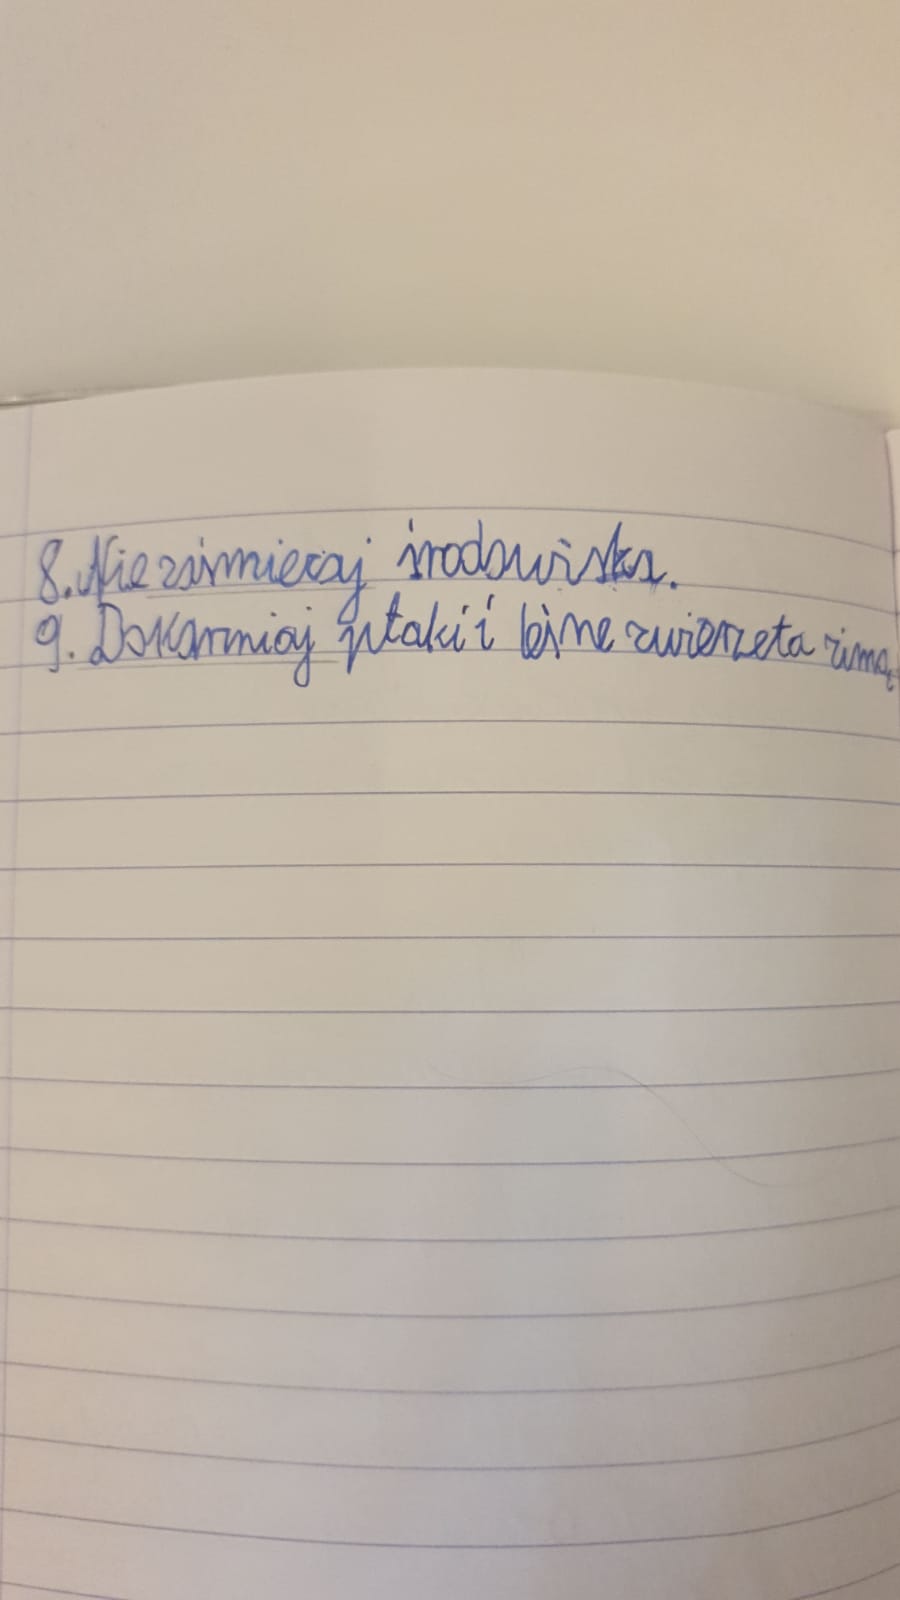 8. Nie zaśmiecaj środowiska.
9. Dokarmiaj ptaki i leśne zwierzęta zimą